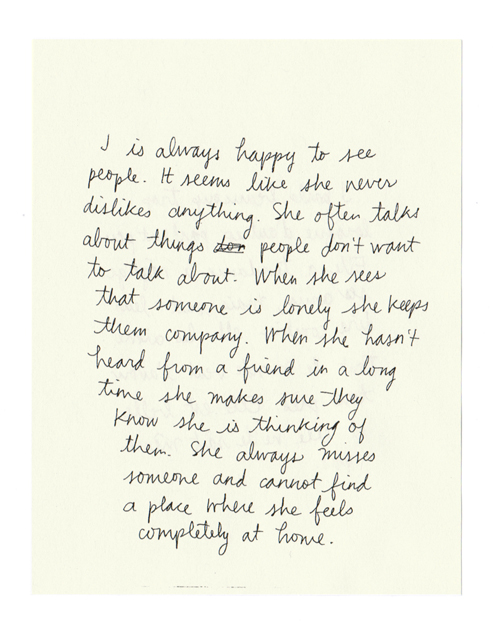 J is always happy to see
people. It seems like she never
dislikes anything. She often talks
about things people don't want
to talk about. When she sees
that someone is lonely she keeps
them company. When she hasn't
heard from a friend in a long
time she makes sure they
know she is thinking of
them. She always misses
someone and cannot find
a place where she feels
completely at home.